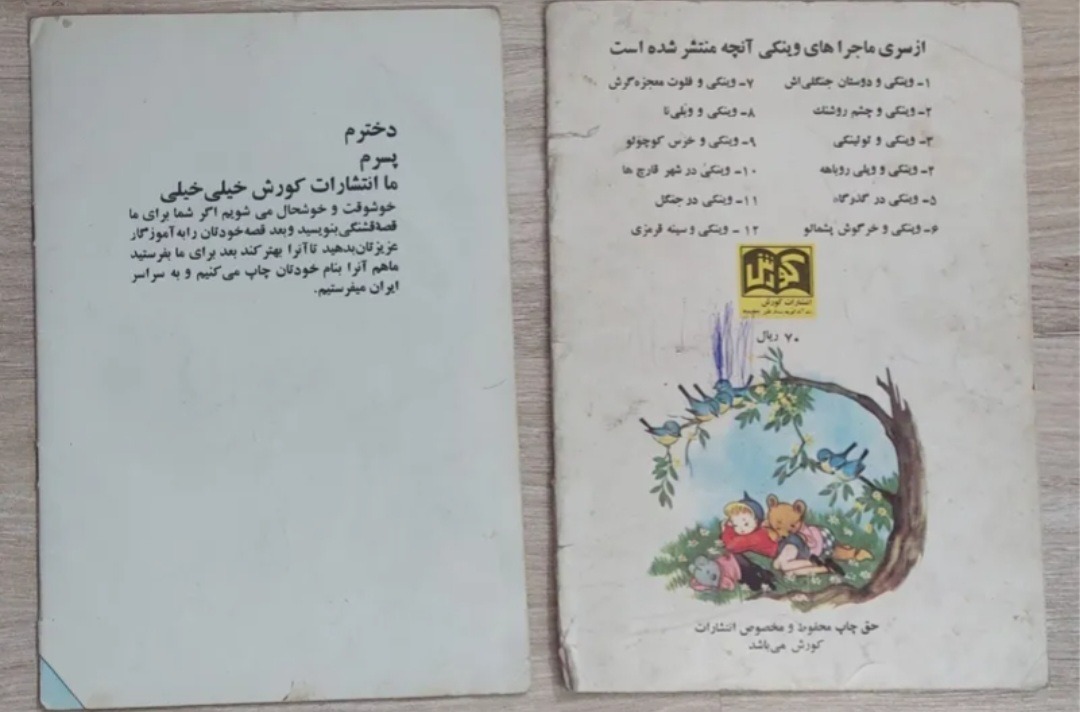 دخترم
پسرم
ما انتشارات کورش خیلی خیلی
خوشوقت و خوشحال می شویم اگر شما برای ما
قصه قشنگی بنویسید و بعد قصه خودتان را به آموزگار
عزیزتان بدهید تا آنرا بهتر کند بعد برای ما بفرستید
ما هم آنرا بنام خودتان چاپ می کنیم و به سراسر
ایران میفرستیم.
از سری ماجرا های وینکی آنچه منتشر شده است
۱- وینکی و دوستان جنگلی اش
۲- وینکی و چشم روشنک
۳- وینکی و لولینکی
۴- وینکی و ویلی روباهه
۵- وینکی در گذرگاه
۶- وینکی و خرگوش پشمالو
۷- وینکی و فلوت معجزه گرش
۸- وینکی و ویلی نا
۹- وینکی و خرس کوچولو
۱۰- وینکی در شهر قارچ ها
۱۱- وینکی در جنگل
۱۲- وینکی و سینه قرمزی
کورش
انتشارات کورش
۷۰ ریال
حق چاپ محفوظ و مخصوص انتشارات
کورش می باشد